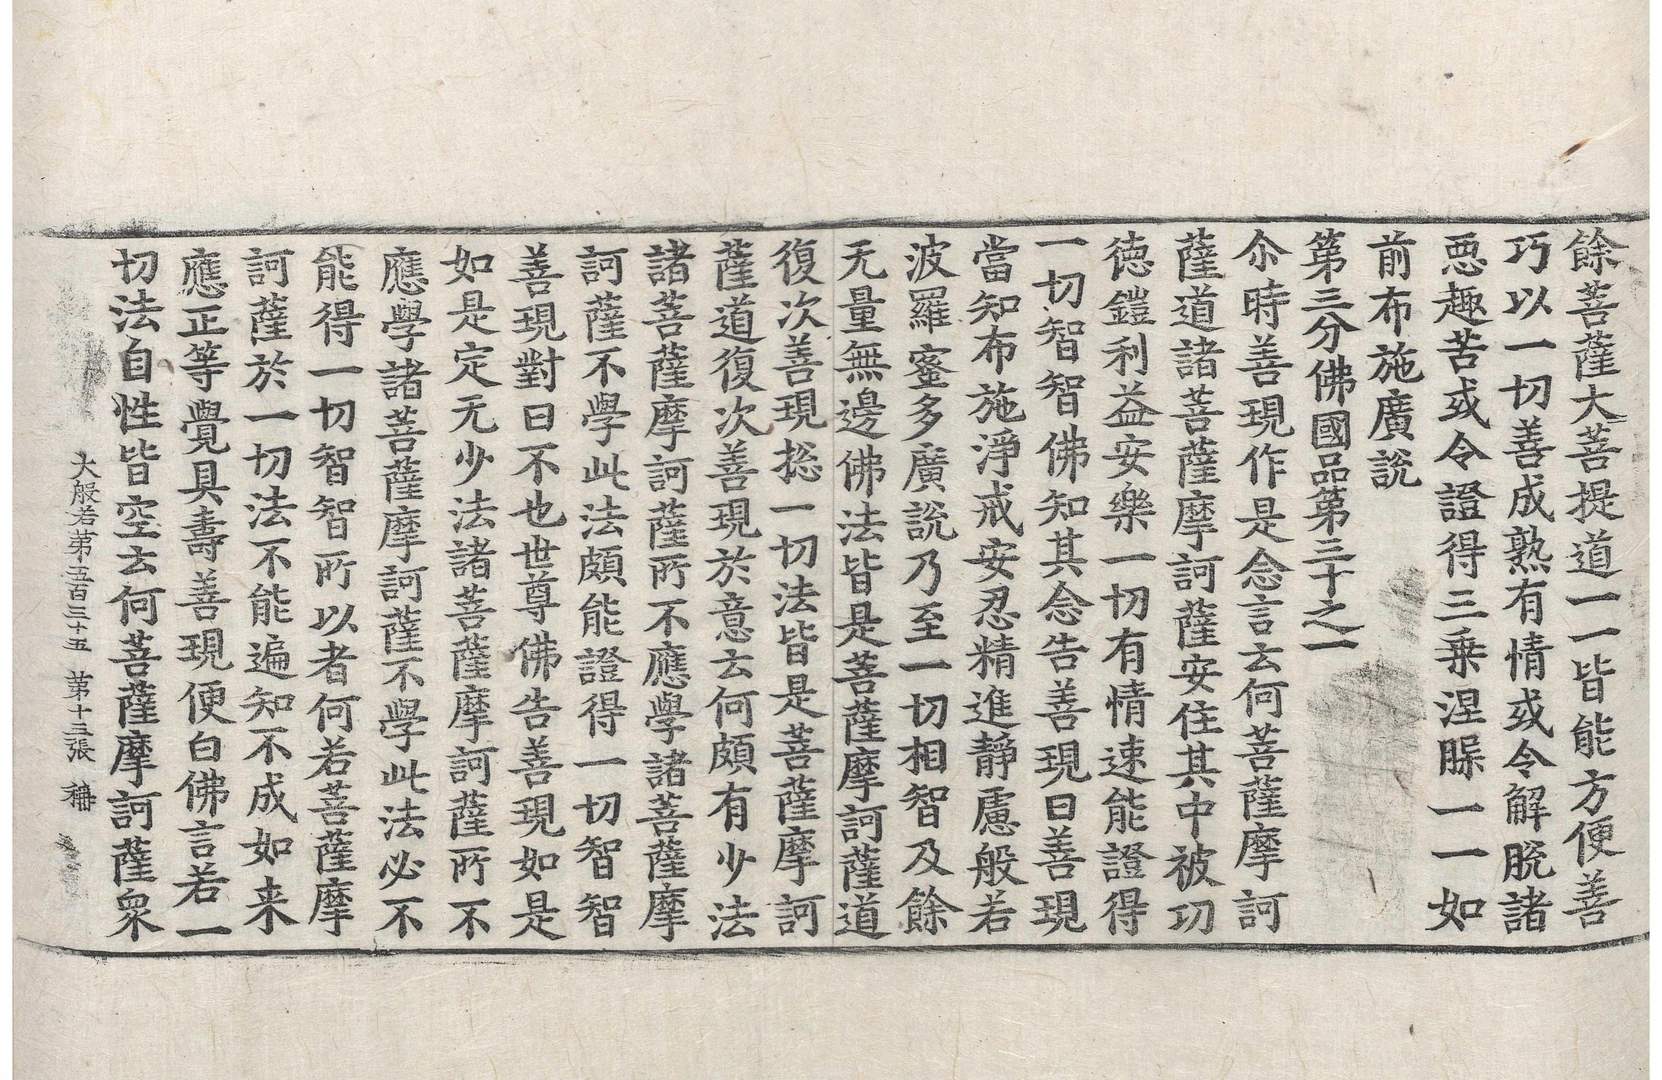 餘菩薩大菩提道一一皆能方便善
巧以一切善成熟有情或令解脫諸
惡趣苦或令證得三乗涅槃一一如
前布施廣說
第三分佛國品第三十之一
尒時善現作是念言云何菩薩摩訶
薩道諸菩薩摩訶薩安住其中被㓛
德鎧利益安樂一切有情速能證得
一切智智佛知其念告善現曰善現
當知布施淨戒安忍精進靜慮般若
波羅蜜多廣說乃至一切相智及餘
无量無邊佛法皆是菩薩摩訶薩道
復次善現揔一切法皆是菩薩摩訶
薩道復次善現於意云何頗有少法
諸菩薩摩訶薩所不應學諸菩薩摩
訶薩不學此法頗能證得一切智智
善現對曰不也世尊佛告善現如是
如是定无少法諸菩薩摩訶薩所不
應學諸菩薩摩訶薩不學此法必不
能得一切智智所以者何若菩薩摩
訶薩於一切法不能遍知不成如来
應正等覺具壽善現便白佛言若一
切法自性皆空云何菩薩摩訶薩衆
大般若第五百三十五 第十三張